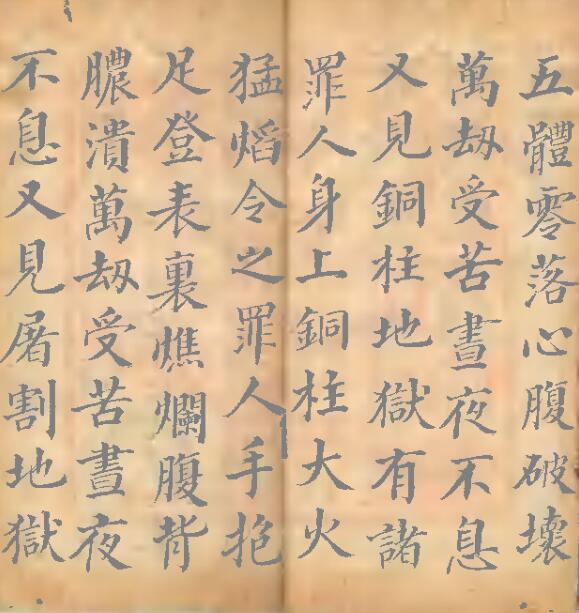 五體零落心腹破壞
萬劫受苦晝夜不息
又見銅柱地獄有諸
罪人身上銅柱大火
猛焰令之罪人手抱
足登表裏燋爛腹背
膿潰萬劫受苦晝夜
不息又見屠割地獄